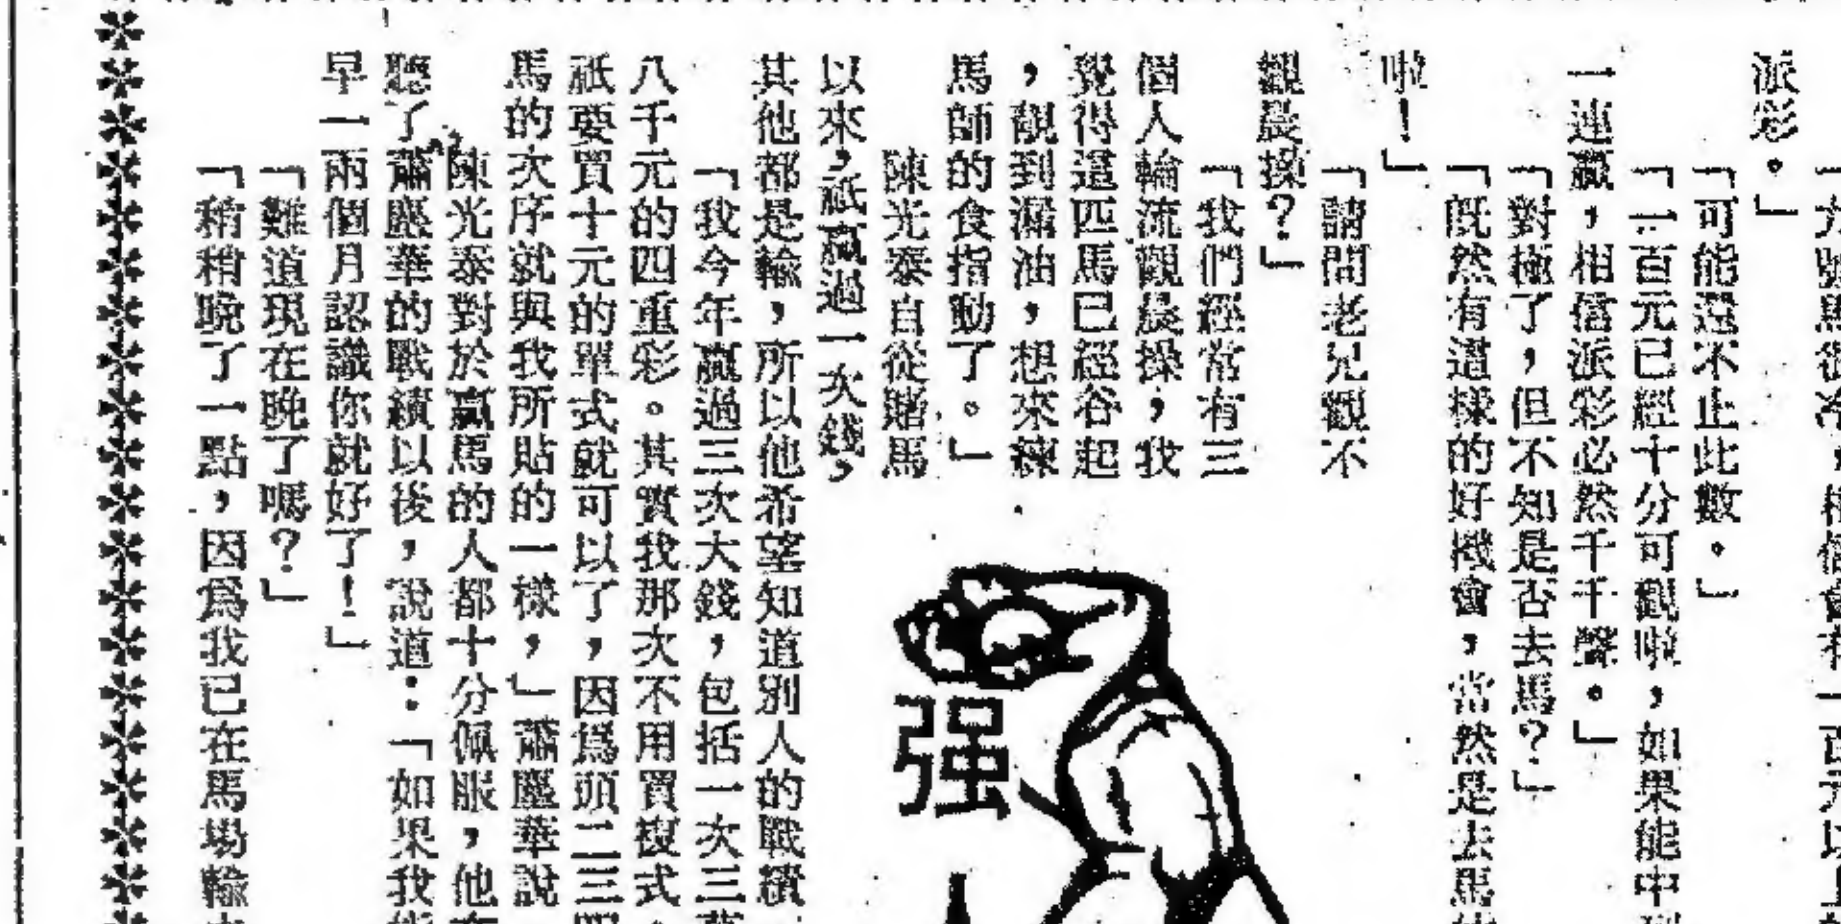 派彩。」
「可能還不止此數。」
「一百元已經十分可觀啦，如果能中
一連贏，相信派彩必然千千聲。」
「對極了，但不知是否去馬？」
「既然有這樣的好機會，當然是去馬
啦！」
「請問老兄觀不
觀晨操？」
「我們經常有三
個人輪流觀晨操，我
覺得這匹馬已經谷起
，靚到漏油，想來練
馬師的食指動了。」
陳光泰自從賭馬
以來，祇贏過一次錢，
其他都是輸，所以他希望知道別人的戰績
「我今年贏過三次大錢，包括一次三萬
八千元的四重彩。其實我那次不用買複式，
祇要買十元的單式就可以了，因爲頭二三四
馬的次序就與我所貼的一樣，」蕭塵華說
陳光泰對於贏馬的人都十分佩服，他
聽了蕭塵華的戰績以後，說道：「如果我能
早一兩個月認識你就好了！」
「難道現在晚了嗎？」
「稍稍晚了一點，因爲我已在馬場輸
强